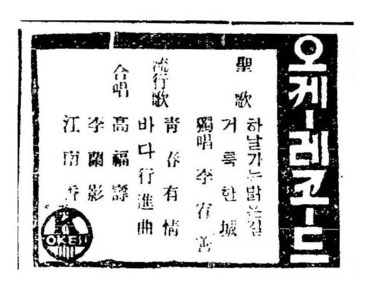 오케-레코-드
聖歌
하날가는밝은길
거룩한城
獨唱 李宥善
流行歌
青春有情
바다行進曲
合唱
高福壽
李蘭影
江南香